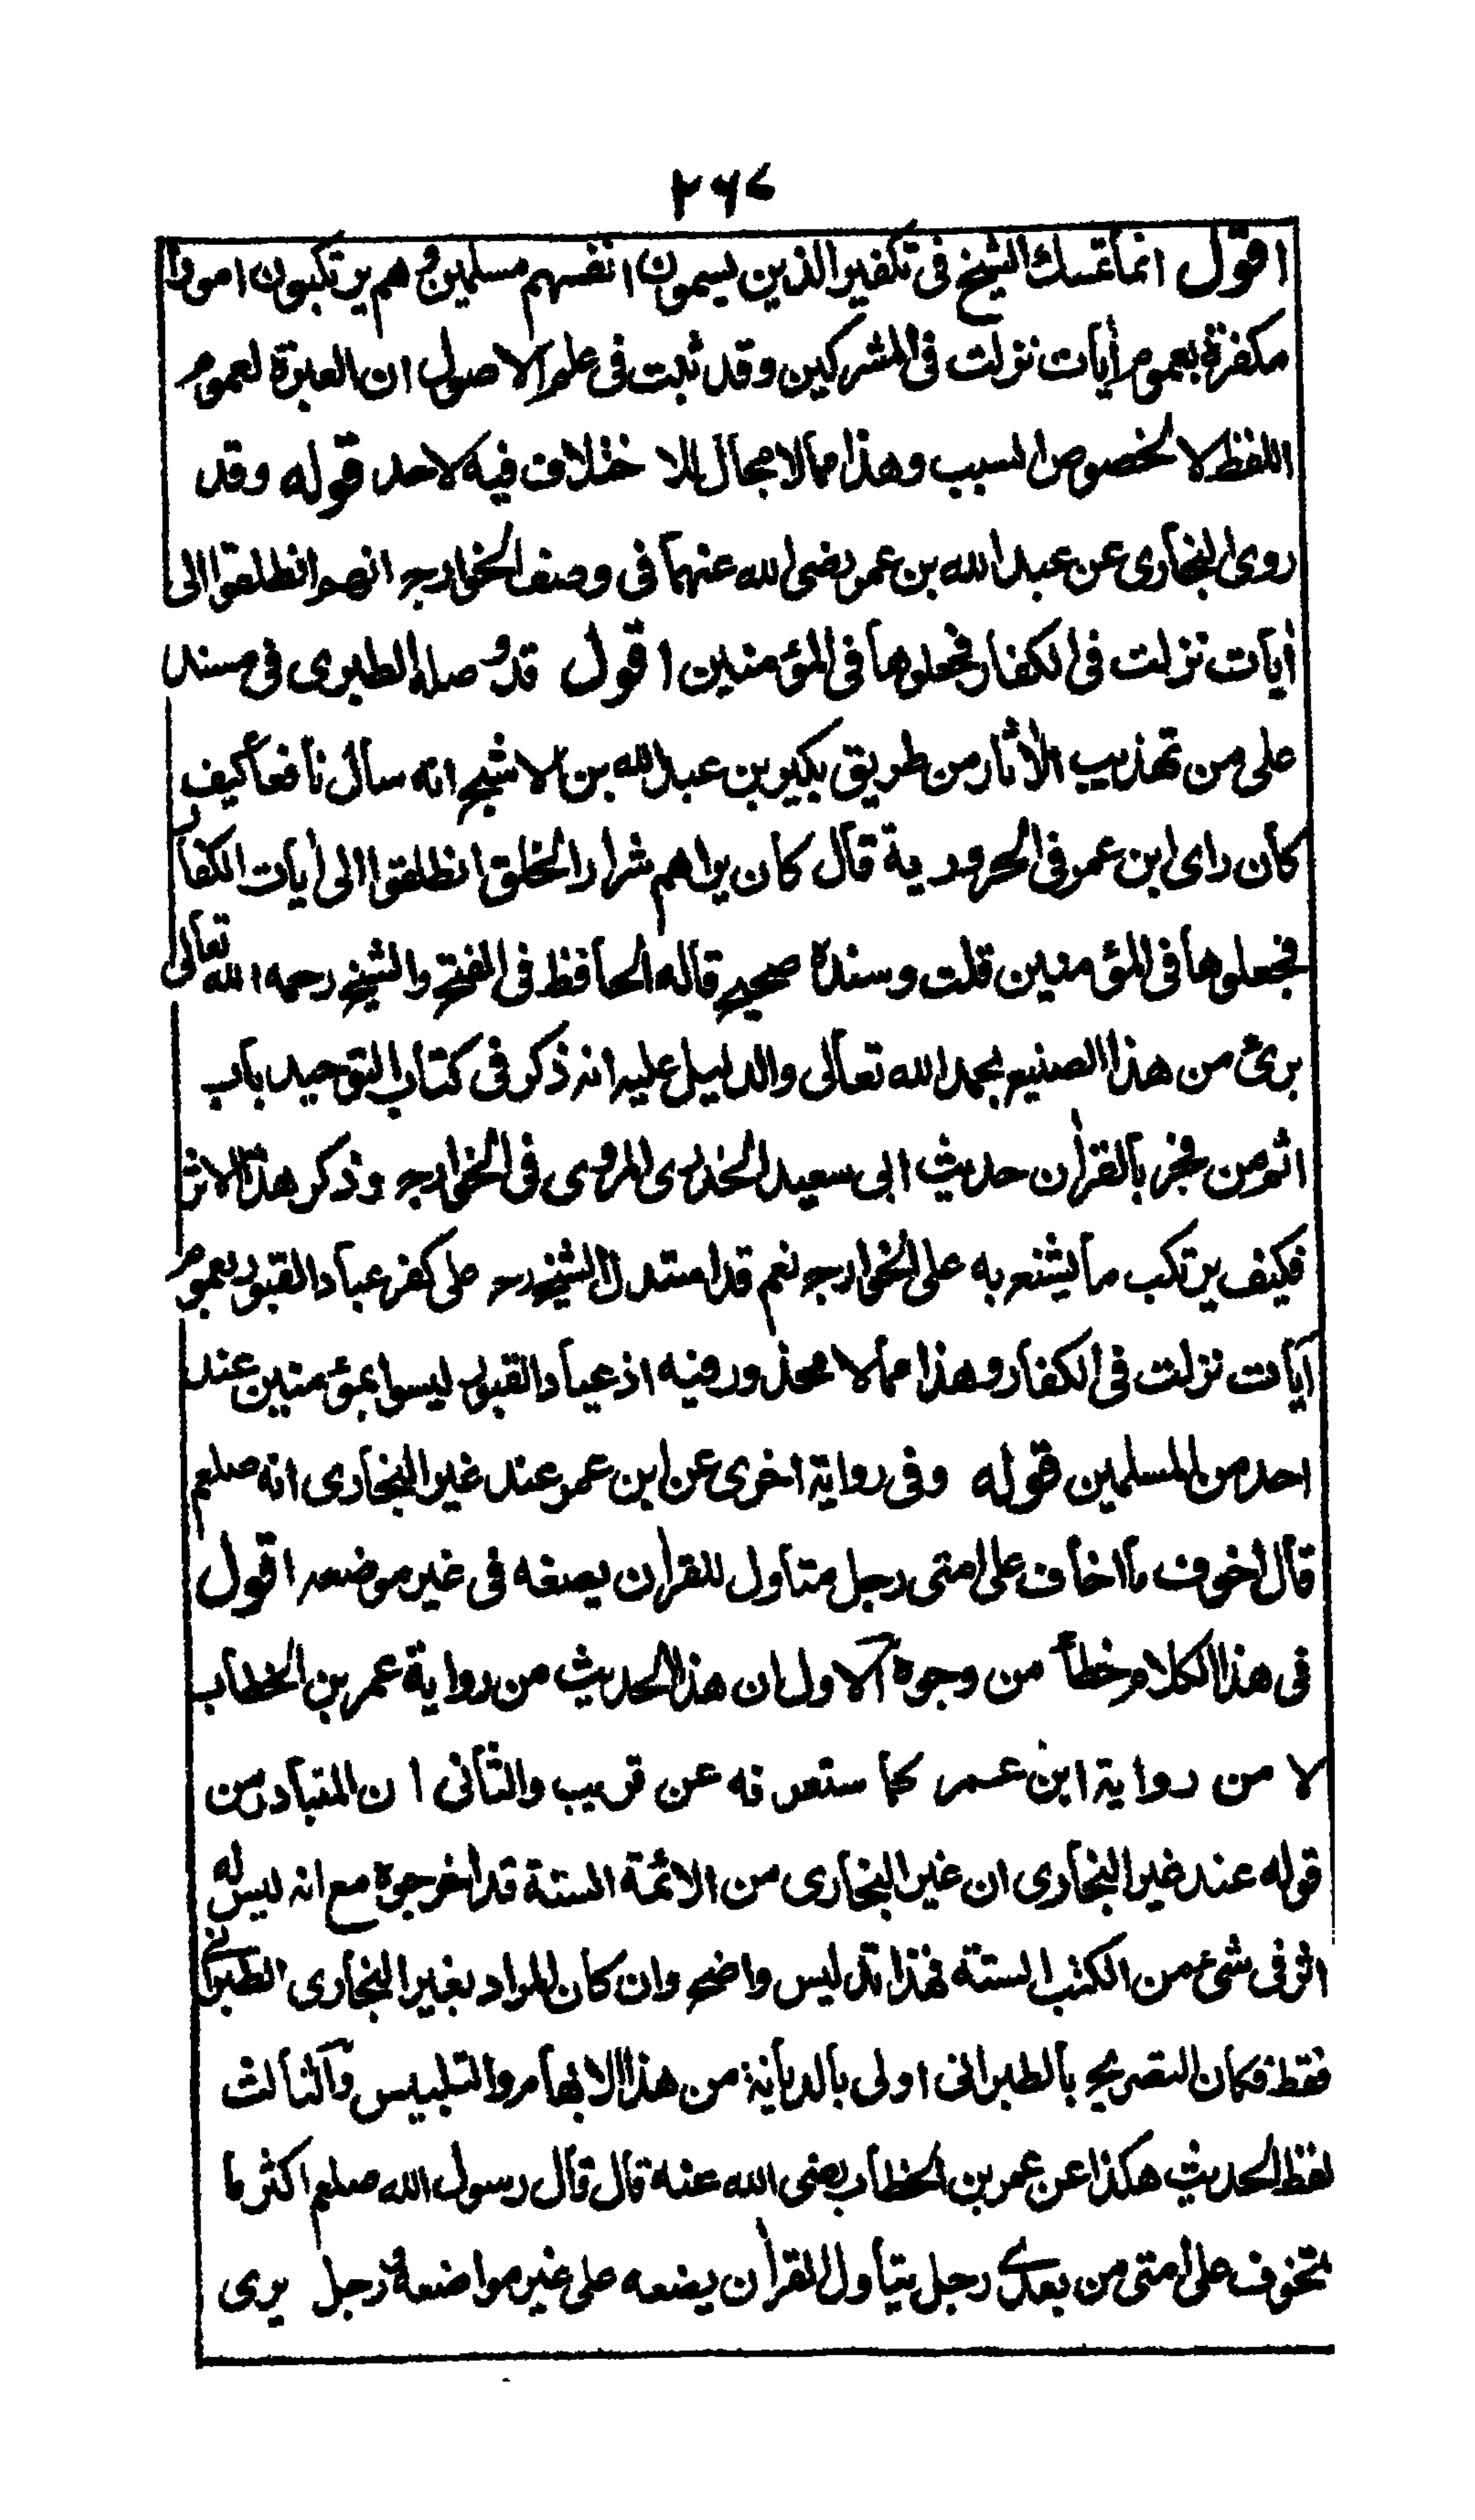 ٢٦٤
اقول انما تمسك الشيخ فى تكفير الذين يسمون انفسهم مسلمين وهم يرتكبون امورا
مكفرة بعموم أيات نزلت فى المشركين وقد ثبت فى علم الاصول ان العبرة لعموم
اللفظ لا لخصوص السبب وهذا مما لا مجال للاختلاف فيه لاحد قوله وقد
روى البخارى عن عبد الله بن عمر رضى الله عنهما فى وصف الخوارج انهم انطلقوا الى
أيات نزلت فى الكفار فجعلوها فى المؤمنين اقول قد وصله الطبرى فى مسند
على من تهذيب الأثار من طريق بكير بن عبد الله بن الاشج انه سأل نافعا كيف
كان راى ابن عمر فى الحرورية قال كان يراهم شرار الخلق انطلقوا الى أيات الكفار
فجعلوها فى المؤمنين قلت وسنده صحيح قاله الحافظ فى الفتح والشيخ رحمه الله تعالى
برئ من هذا الصنيع بحمد الله تعالى والدليل عليه انه ذكر فى كتاب التوحيد باب
اثم من فجر بالقرأن حديث ابى سعيد الخدرى المروى فى الخوارج وذكر هذا الاثر
فكيف يرتكب ما يشنع به على الخوارج نعم قد استدل الشيخ رح على كفر عباد القبور بعموم
آيات نزلت فى الكفار وهذا مما لا محذور فيه اذ عباد القبور ليسوا بمؤمنين عند
احد من المسلمين قوله وفى رواية اخرى عن ابن عمر عند غير البخارى انه صلعم
قال اخوف ما اخاف على امتى رجل متاول للقرأن يضعه فى غير موضعه اقول
فى هذا الكلام خطأ من وجوه الاول ان هذا الحديث من رواية عمر بن الخطاب
لا من رواية ابن عمر كما ستعرفه عن قريب والثانى ان المتبادر من
قوله عند غير البخارى ان غير البخارى من الائمة الستة قد اخرجوه مع انه ليس له
اثر فى شئ من الكتب الستة فهذا تدليس واضح وان كان المراد بغير البخارى الطبرانى
فقط فكان التصريح بالطبرانى اولى بالديانة من هذا الابهام والتلبيس والثالث
لفظ الحديث هكذا عن عمر بن الخطاب رضى الله عنه قال قال رسول الله صلعم اكثر ما
يتخوف على امتى من بعدى رجل يتاول القرأن يضعه على غير مواضعه ورجل يرى